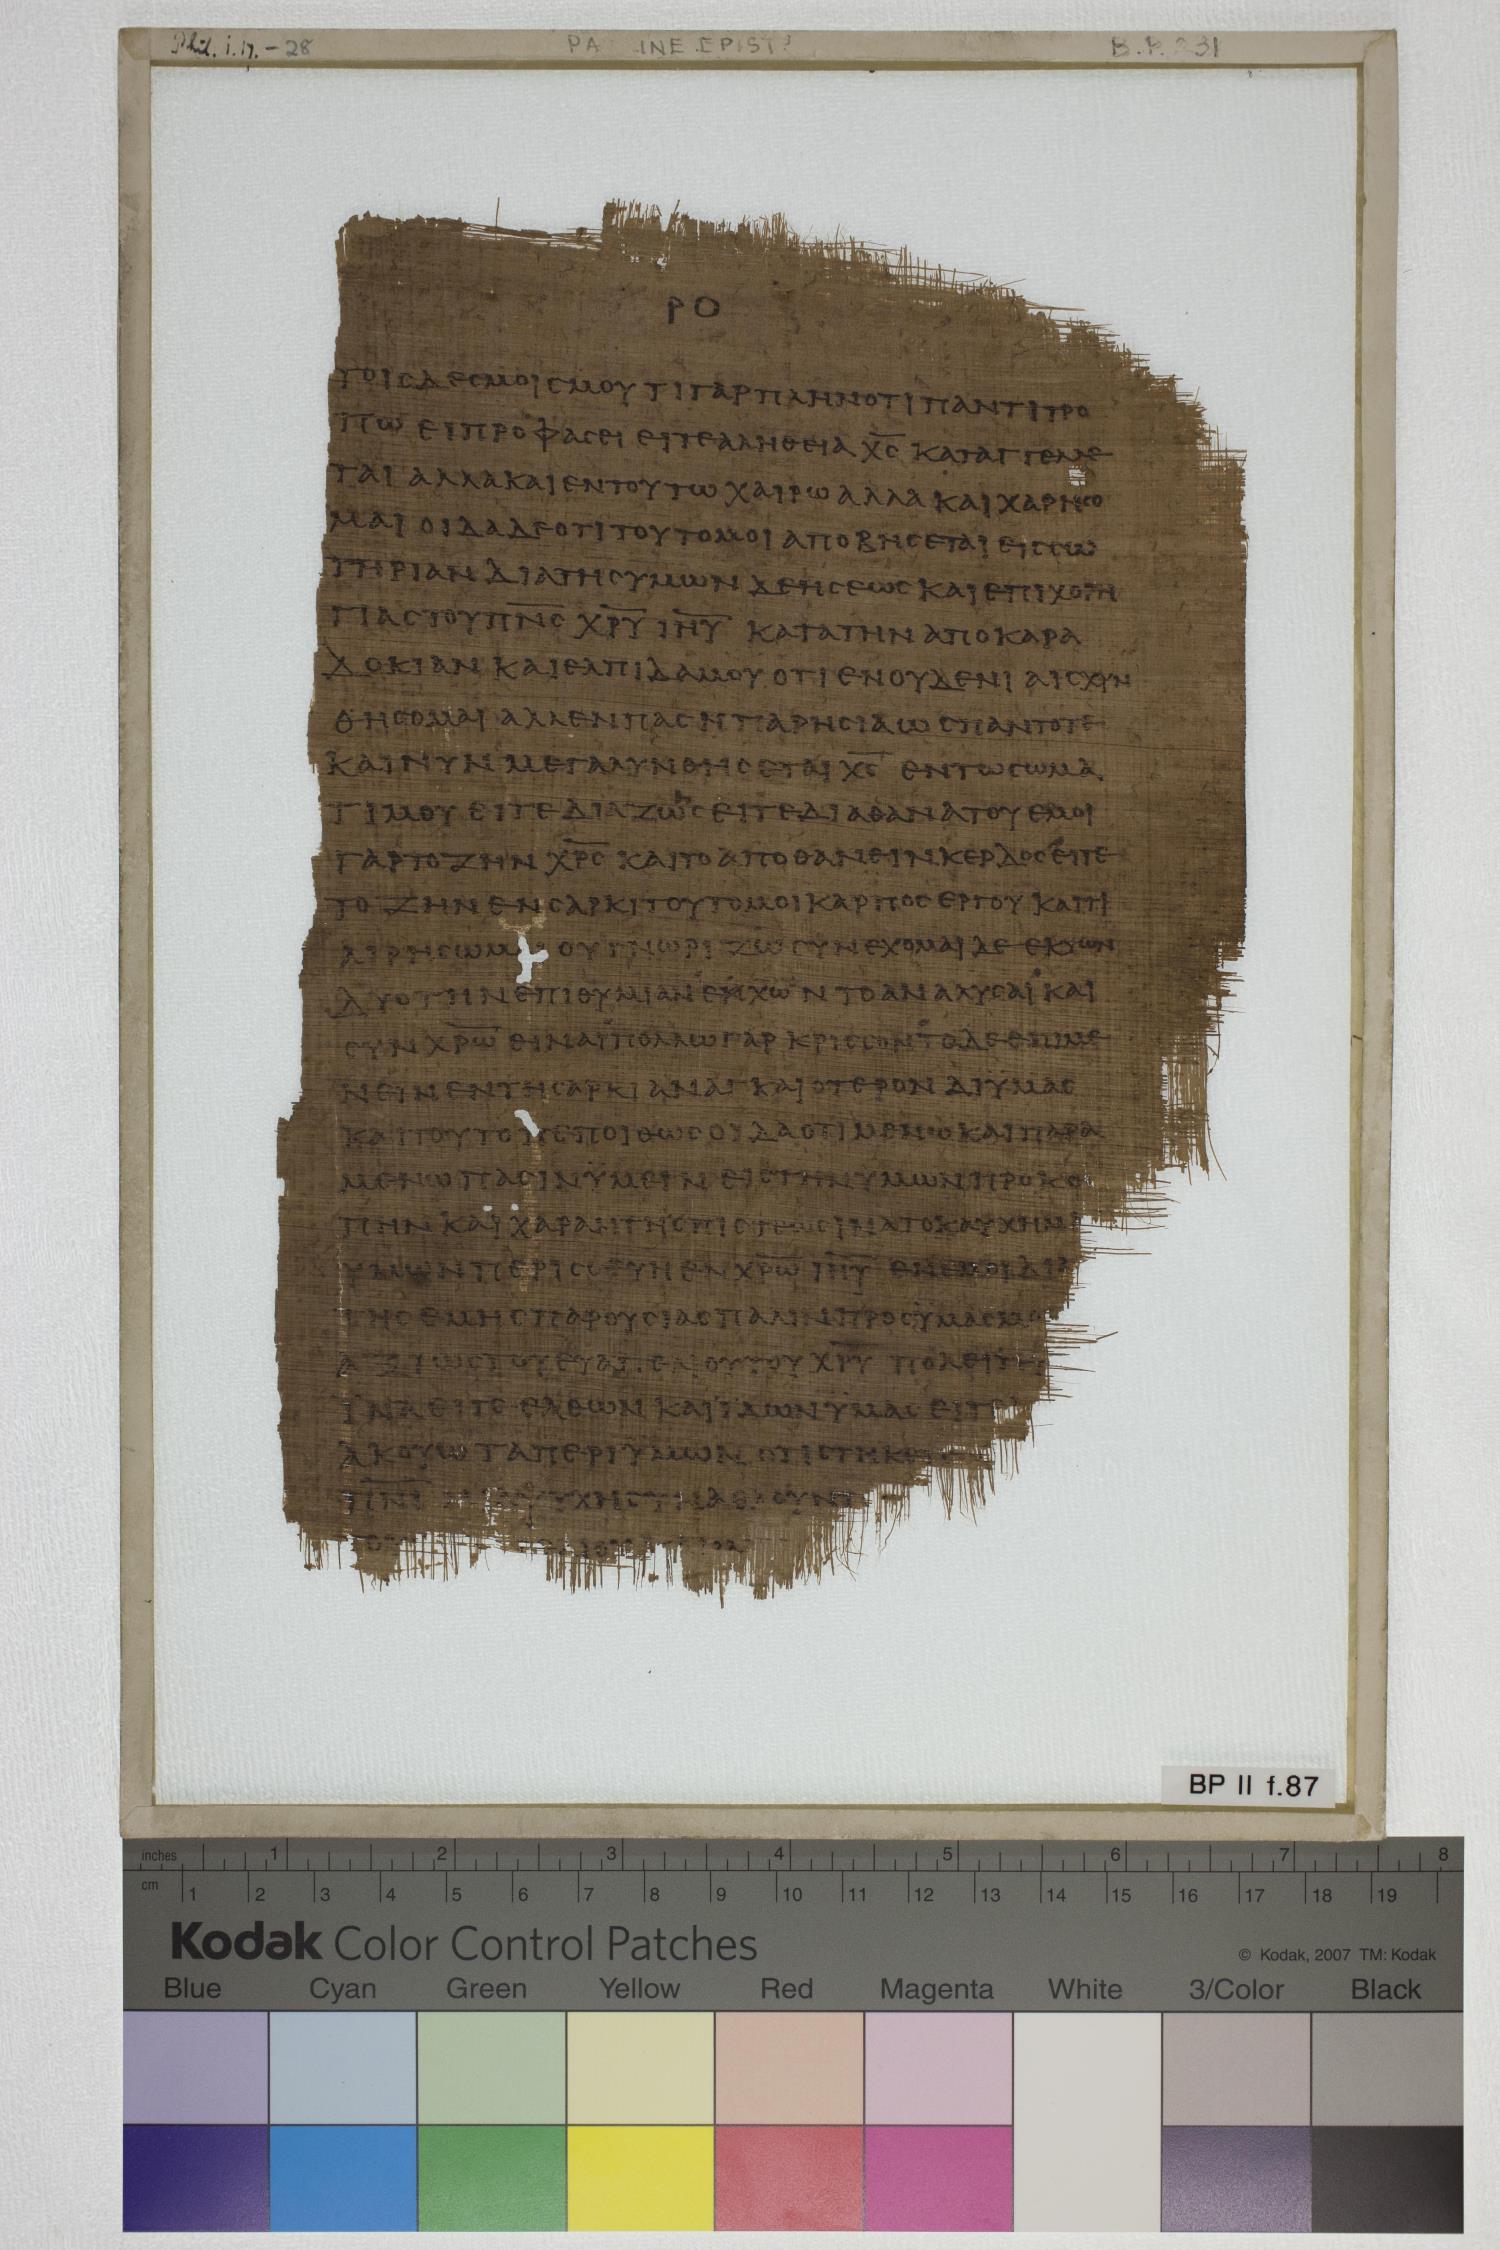 Phil. i. 17. - 28 PA INE EPIST? B.P. 231
ΡΟ
ΤΟΙϹΔΕϹΜΟΙϹΜΟΥ ΤΙΓΑΡΠΛΗΝΟΤΙΠΑΝΤΙΤΡΟ
ΠΩ ΕΙΠΡΟΦΑϹΕΙ ΕΙΤΕΑΛΗΘΕΙΑ Χ̅Ϲ̅ ΚΑΤΑΓΓΕΛΛΕ
ΤΑΙ ΑΛΛΑΚΑΙΕΝΤΟΥΤΩ ΧΑΙΡΩ ΑΛΛΑ ΚΑΙ ΧΑΡΗϹΟ
ΜΑΙ ΟΙΔΑΔΕΟΤΙΤΟΥΤΟΜΟΙ ΑΠΟΒΗϹΕΤΑΙ ΕΙϹϹΩ
ΤΗΡΙΑΝ ΔΙΑΤΗϹΥΜΩΝ ΔΕΗϹΕΩϹ ΚΑΙ ΕΠΙΧΟΡΗ
ΓΙΑϹΤΟΥΠ̅Ν̅Ϲ̅ Χ̅Ρ̅Υ̅ Ι̅Η̅Υ̅ ΚΑΤΑΤΗΝ ΑΠΟΚΑΡΑ
ΔΟΚΙΑΝ ΚΑΙΕΛΠΙΔΑΜΟΥ ΟΤΙ ΕΝΟΥΔΕΝΙ ΑΙϹΧΥΝ
ΘΗϹΟΜΑΙ ΑΛΛΕΝΠΑϹΗΠΑΡΗϹΙΑΩϹΠΑΝΤΟΤΕ
ΚΑΙΝΥΝ ΜΕΓΑΛΥΝΘΗϹΕΤΑΙ Χ̅Ϲ̅ ΕΝΤΩϹΩΜΑ
ΤΙΜΟΥ ΕΙΤΕΔΙΑΖΩΗϹΕΙΤΕΔΙΑΘΑΝΑΤΟΥ ΕΜΟΙ
ΓΑΡΤΟΖΗΝ Χ̅Ρ̅Ϲ̅ ΚΑΙΤΟΑΠΟΘΑΝΕΙΝΚΕΡΔΟϹΕΙΤΕ
ΤΟ ΖΗΝ ΕΝϹΑΡΚΙΤΟΥΤΟΜΟΙΚΑΡΠΟϹ ΕΡΓΟΥ ΚΑΙΤΙ
ΑΙΡΗϹΩΜΑΙ ΟΥΓΝΩΡΙΖΩ ϹΥΝΕΧΟΜΑΙ ΔΕ ΕΚΤΩΝ
ΔΥΟ ΤΗΝΕΠΙΘΥΜΙΑΝ ΕΧΩΝ ΤΟΑΝΑΛΥϹΑΙ ΚΑΙ
ϹΥΝ Χ̅Ρ̅Ω̅ ΕΙΝΑΙ ΠΟΛΛΩ ΓΑΡ ΚΡΙϹϹΟΝ ΤΟΔΕ ΕΠΙΜΕ
ΝΕΙΝ ΕΝΤΗϹΑΡΚΙ ΑΝΑΓΚΑΙΟΤΕΡΟΝ ΔΙΥΜΑϹ
ΚΑΙΤΟΥΤΟΠΕΠΟΙΘΩϹ ΟΙΔΑΟΤΙ ΜΕΝΩ ΚΑΙΠΑΡΑ
ΜΕΝΩ ΠΑϹΙΝΫΜΕΙΝ ΕΙϹΤΗΝΥΜΩΝΠΡΟΚΟ
ΠΗΝ ΚΑΙ ΧΑΡΑΝΤΗϹΠΙϹΤΕΩϹΙΝΑΤΟΚΑΥΧΗΜΑ
ΥΜΩΝΠΕΡΙϹϹΕΥΗ ΕΝ Χ̅Ρ̅Ω̅ Ι̅Η̅Υ̅ ΕΝΕΜΟΙΔΙΑ
ΤΗϹ ΕΜΗϹΠΑΡΟΥϹΙΑϹΠΑΛΙΝΠΡΟϹΫΜΑϹΜΟ
ΑΞΙΩϹΤΟΥΕΥΑΓΓΕΛΙΟΥΤΟΥ Χ̅Ρ̅Υ̅ ΠΟΛΕΙΤΕ
ΙΝΑ ΕΙΤΕ ΕΛΘΩΝ ΚΑΙ ΙΔΩΝ ΫΜΑϹ ΕΙΤΕ
ΑΚΟΥΩ ΤΑΠΕΡΙΥΜΩΝ ΟΤΙϹΤΗΚΕ
Π̅Ν̅Ι̅ ΨΥΧΗϹΥΝΑΘΛΟΥΝΤ
BP II f.87
inches 1 2 3 4 5 6 7 8
cm 1 2 3 4 5 6 7 8 9 10 11 12 13 14 15 16 17 18 19
Kodak Color Control Patches
© Kodak, 2007 TM: Kodak
Blue Cyan Green Yellow Red Magenta White 3/Color Black